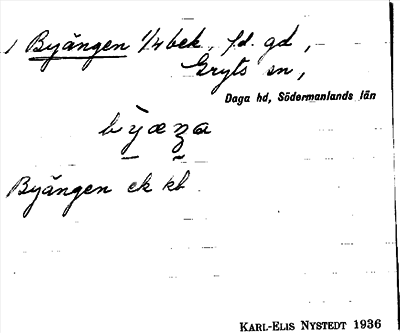 1 Byängen 1/4 bek, f.d. gd,
Gryts sn,
Daga hd, Södermanlands län
bỳæŋa
Byängen ek kb.
KARL-ELIS NYSTEDT 1936